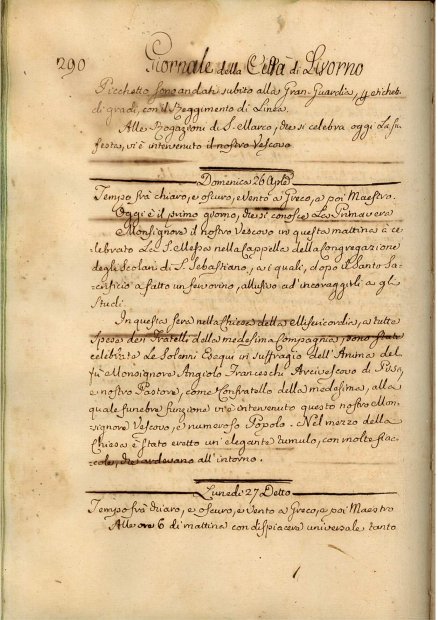 290 Giornale della Città di Livorno
Picchetto sono andati subito alla Gran-Guardia, p etichet.
di gradi, con il Reggimento di Linea.
Alle Rogazioni di S. Marco, che si celebra oggi La sua
festa, vi è intervenuto il nostro Vescovo
Domenica 26 Aple
Tempo frà chiaro, e oscuro, e vento a Greco, e poi Maestro.
Oggi è il primo giorno, che si conosce La Primavera
Monsignore il nostro Vescovo in questa mattina à ce-
lebrato La S. Messa nella Cappella della Congregazione
degli Scolari di S. Sebastiano, a i quali, dopo il Santo Sa-
crificio à fatto un fervorino, allusivo ad' incoraggirli a gli
Studi.
In questa sera nella Chiesa della Misericordia, a tutte
Spese dei Fratelli della medesima Compagnia, sono state
celebrate Le Solenni Esequi in suffragio dell' Anima del
fù Monsignore Angiolo Franceschi Arcivescovo di Pisa,
e nostro Pastore, come Confratello della medesima, alla
quale funebre funzione vi è intervenuto questo nostro Mon-
signore Vescovo, e numeroso Popolo. Nel mezzo della
Chiesa è stato eretto un' elegante tumulo, con molte fiac-
cole, che ardevano all' intorno.
Lunedì 27 Detto
Tempo frà chiaro, e oscuro, e vento a Greco, e poi Maestro
Alle ore 6 di mattina con dispiacere universale tanto